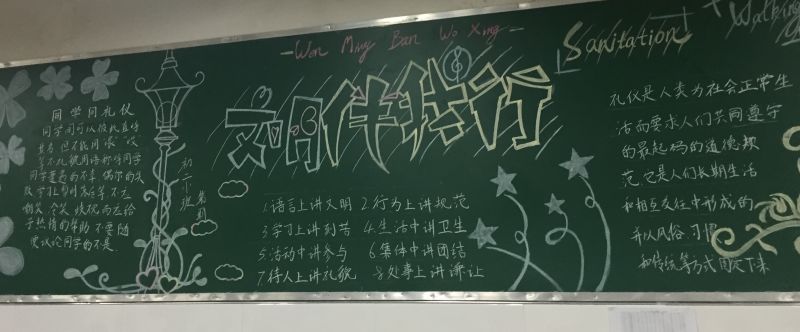 Wen Ming Ban Wo Xing
Sanitation
Walking
文明伴我行
同学间礼仪
同学间可以彼此直呼
其名,但不能用"喂"、"哎"
等不礼貌用语称呼同学
同学遭遇的不幸,偶尔的失
败,学习上暂时落后等,不应
嘲笑、冷笑、歧视,而应给
予热情的帮助,不要随
便议论同学的不是。
幼二小班
第1周
1.语言上讲文明 2.行为上讲规范
3.学习上讲刻苦 4.生活中讲卫生
5.活动中讲参与 6.集体中讲团结
7.待人上讲礼貌 8.处事上讲谦让
礼仪是人类为社会正常生
活而要求人们共同遵守
的最起码的道德规
范,它是人们长期生活
和相互交往中形成的
并以风俗、习惯
和传统等方式固定下来